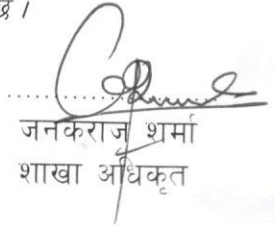 छ।
..................
जनकराज शर्मा
शाखा अधिकृत